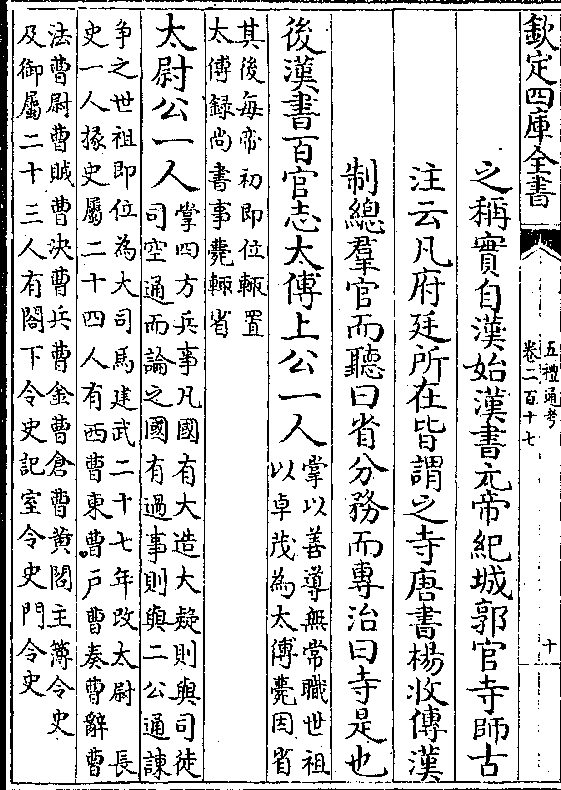 欽定四庫全書
五禮通考
卷二百十七
十
之稱實自漢始漢書元帝紀城郭官寺師古
注云凡府廷所在皆謂之寺唐書楊收傳漢
制總羣官而聽曰省分務而專治曰寺是也
後漢書百官志太傅上公一人
掌以善導無常職世祖
以卓茂為太傅薨因省
其後每帝初即位輒置
太傅録尚書事薨輒省
太尉公一人
掌四方兵事凡國有大造大疑則與司徒
司空通而論之國有過事則與二公通諫
争之世祖即位為大司馬建武二十七年改太尉 長
史一人掾史屬二十四人有西曹東曹戶曹奏曹辭曹
法曹尉曹賊曹決曹兵曹金曹倉曹黄閤主簿令史
及御屬二十三人有閤下令史記室令史門令史